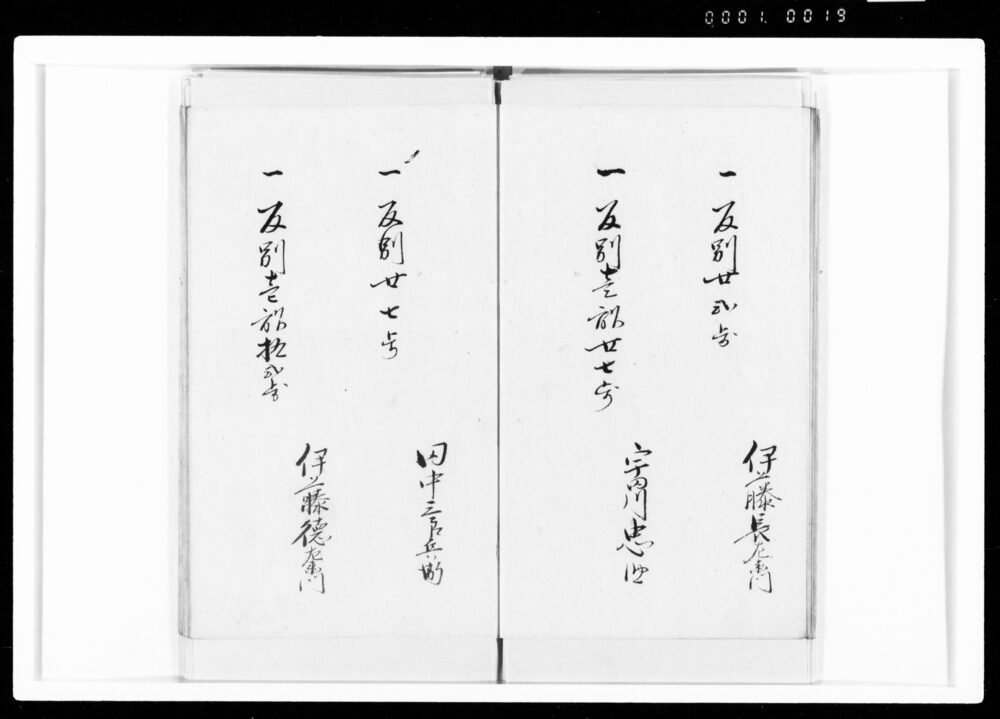 0001.0019
一 反別廿弐歩
伊藤長左衛門
一 反別壱畝廿七歩
宇田川忠
一 反別廿七歩
田中三右兵衛
一 反別壱畝拾弐歩
伊藤徳左衛門